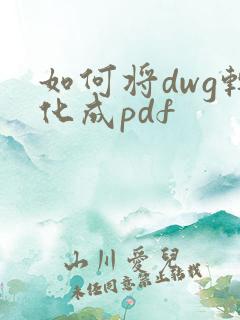 如何将dwg转
化成pdf
山川爱儿
未经同意禁止转载